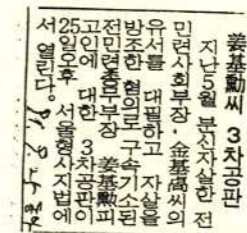 姜基勳씨 3차공판
지난5월 분신자살한 전
민련사회부장·金基卨씨의
유서를 대필하고 자살을
방조한 혐의로 구속기소된
전민련총무부장 姜基勳피
고인에 대한 3차공판이
25일오후 서울형사지법에
서 열린다.